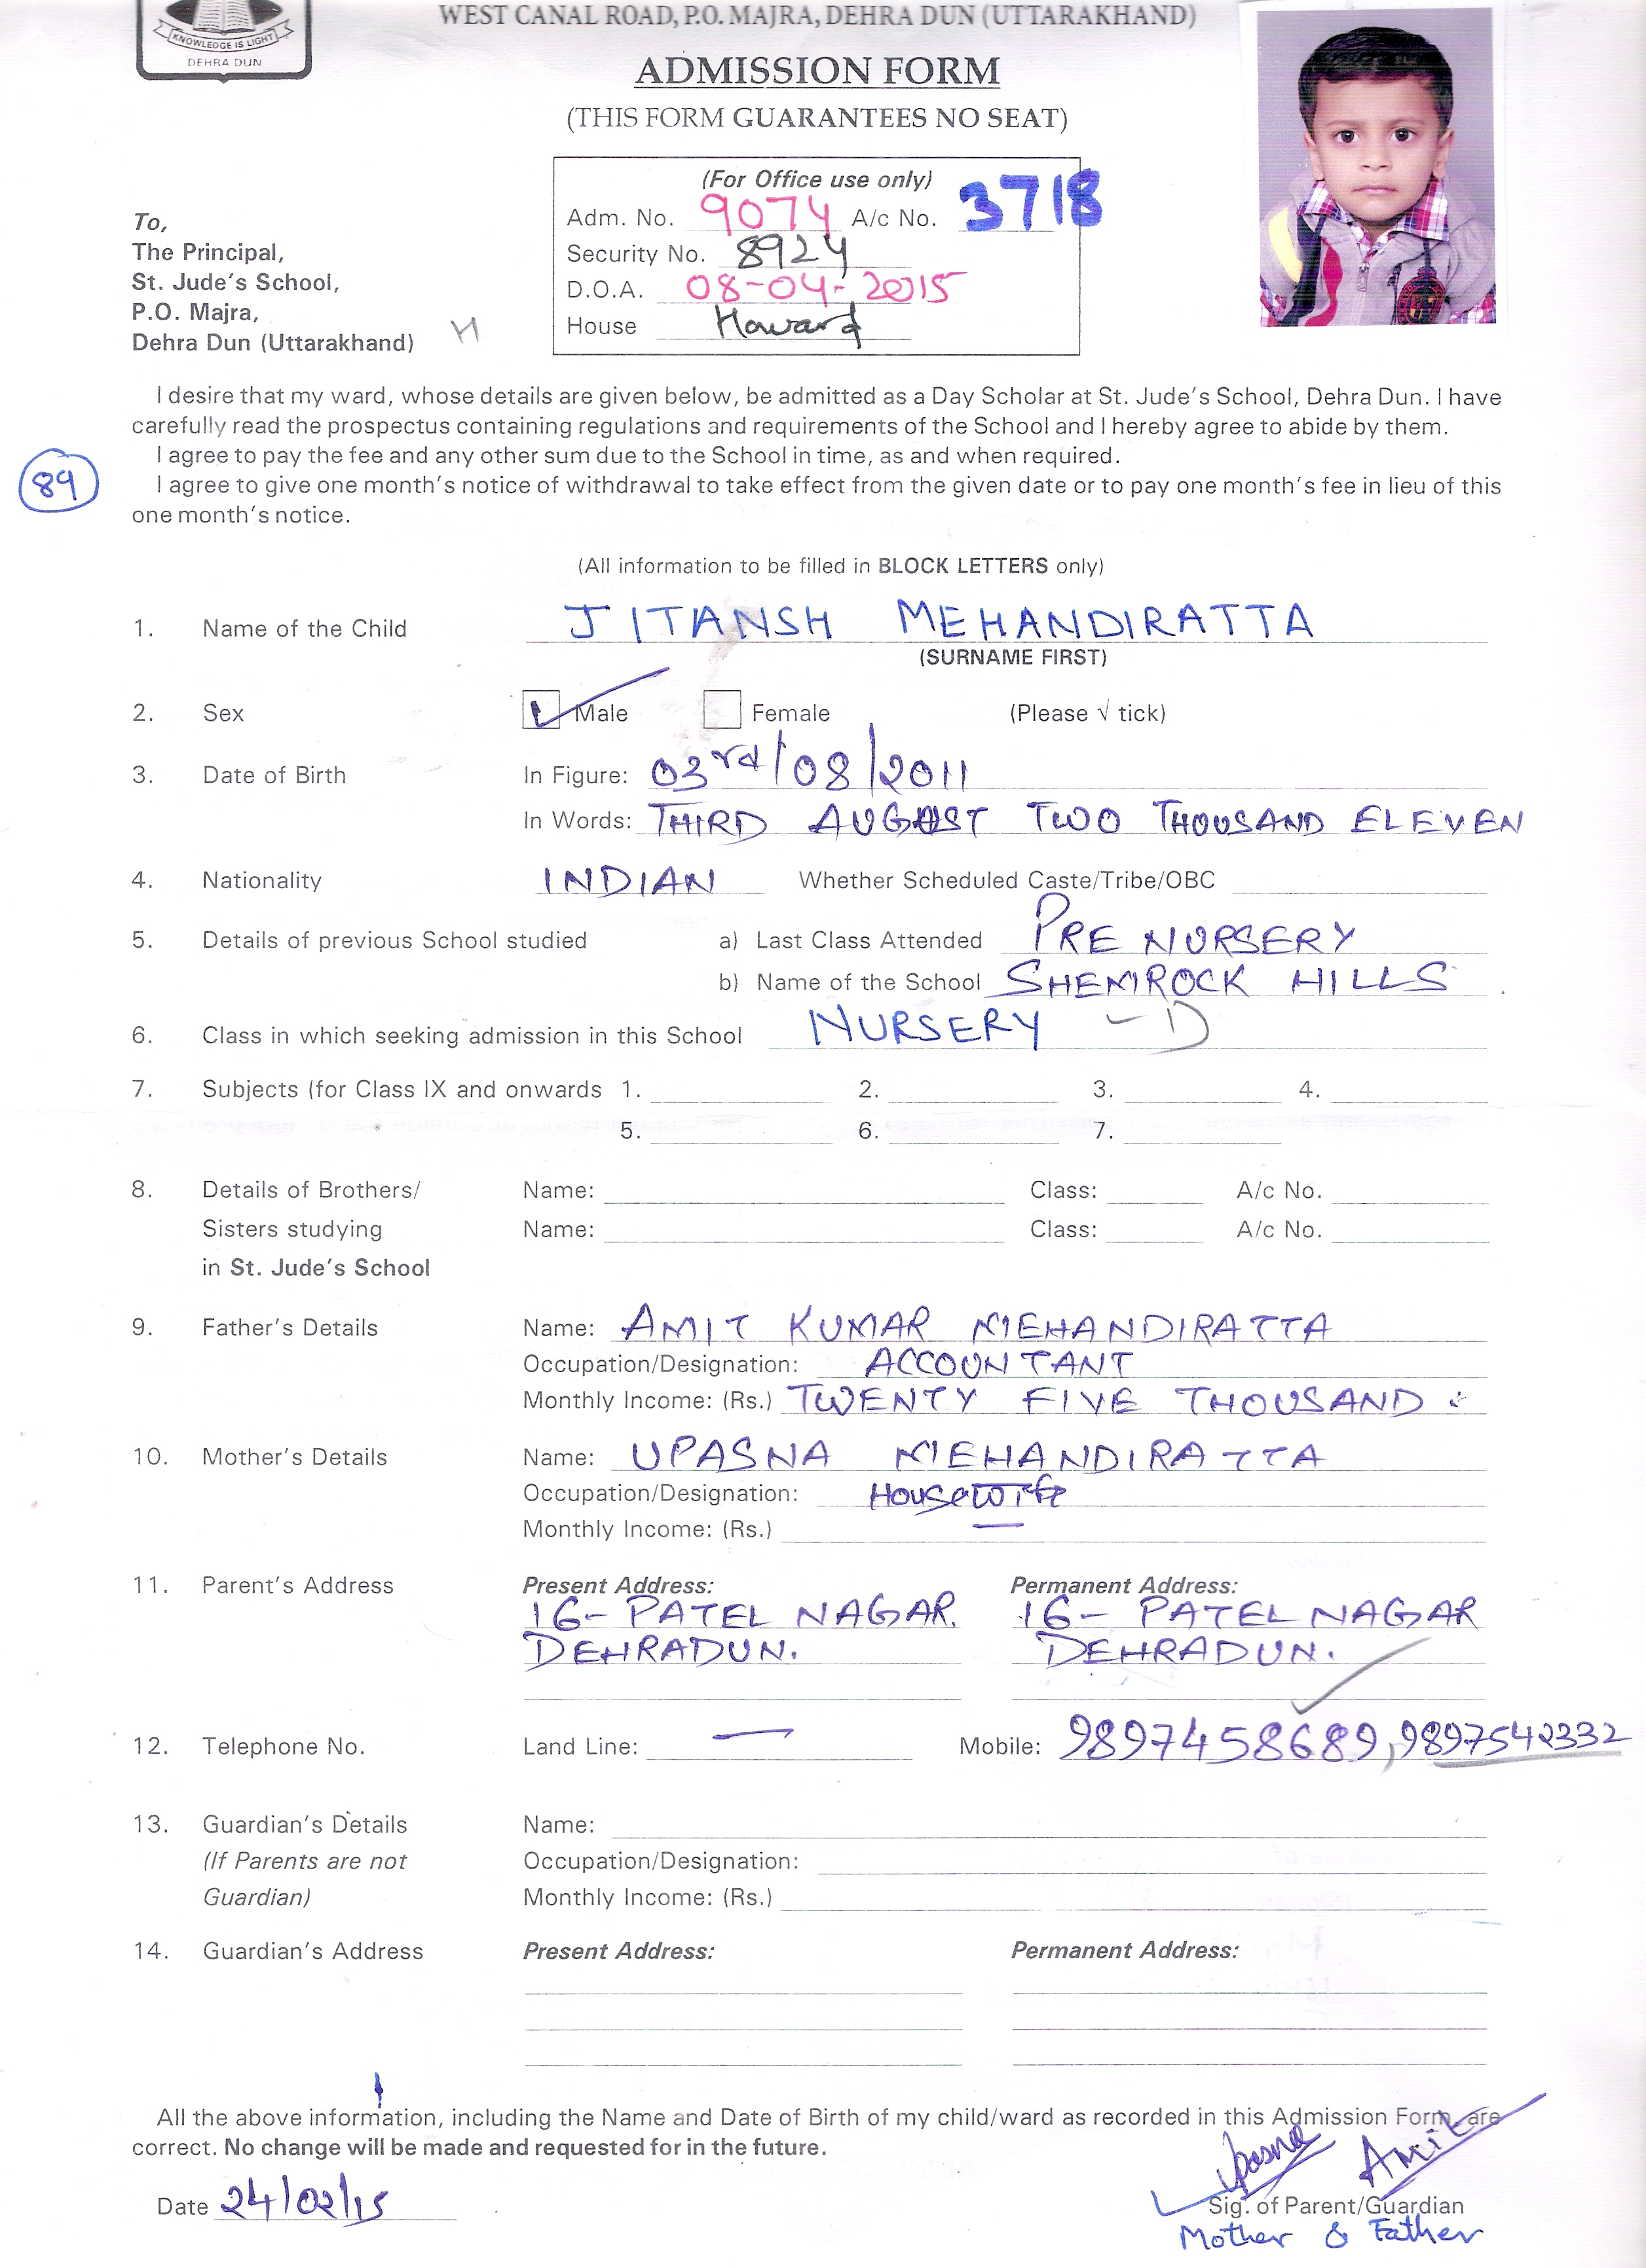 KNOWLEDGE IS LIGHT
DEHRA DUN
WEST CANAL ROAD, P.O. MAJRA, DEHRA DUN (UTTARAKHAND)
ADMISSION FORM
(THIS FORM GUARANTEES NO SEAT)
(For Office use only)
Adm. No. 9074 A/c No. 3718
Security No. 8924
D.O.A. 08-04-2015
House Howard
To,
The Principal,
St. Jude's School,
P.O. Majra,
Dehra Dun (Uttarakhand) H
I desire that my ward, whose details are given below, be admitted as a Day Scholar at St. Jude's School, Dehra Dun. I have
carefully read the prospectus containing regulations and requirements of the School and I hereby agree to abide by them.
I agree to pay the fee and any other sum due to the School in time, as and when required.
89
I agree to give one month's notice of withdrawal to take effect from the given date or to pay one month's fee in lieu of this
one month's notice.
(All information to be filled in BLOCK LETTERS only)
1. Name of the Child JITANSH MEHANDIRATTA
(SURNAME FIRST)
2. Sex ✓ Male Female (Please √ tick)
3. Date of Birth In Figure: 03rd/08/2011
In Words: THIRD AUGUST TWO THOUSAND ELEVEN
4. Nationality INDIAN Whether Scheduled Caste/Tribe/OBC
5. Details of previous School studied a) Last Class Attended PRE NURSERY
b) Name of the School SHEMROCK HILLS
6. Class in which seeking admission in this School NURSERY - D
7. Subjects (for Class IX and onwards 1. 2. 3. 4.
5. 6. 7.
8. Details of Brothers/ Name: Class: A/c No.
Sisters studying Name: Class: A/c No.
in St. Jude's School
9. Father's Details Name: AMIT KUMAR MEHANDIRATTA
Occupation/Designation: ACCOUNTANT
Monthly Income: (Rs.) TWENTY FIVE THOUSAND
10. Mother's Details Name: UPASNA MEHANDIRATTA
Occupation/Designation: Housewife
Monthly Income: (Rs.) —
11. Parent's Address Present Address: Permanent Address:
16- PATEL NAGAR. 16- PATEL NAGAR
DEHRADUN. DEHRADUN.
12. Telephone No. Land Line: — Mobile: 9897458689, 9897542332
13. Guardian's Details Name:
(If Parents are not Occupation/Designation:
Guardian) Monthly Income: (Rs.)
14. Guardian's Address Present Address: Permanent Address:
All the above information, including the Name and Date of Birth of my child/ward as recorded in this Admission Form, are
correct. No change will be made and requested for in the future.
Upasna Amit
Date 24/02/15 Sig. of Parent/Guardian
Mother & Father